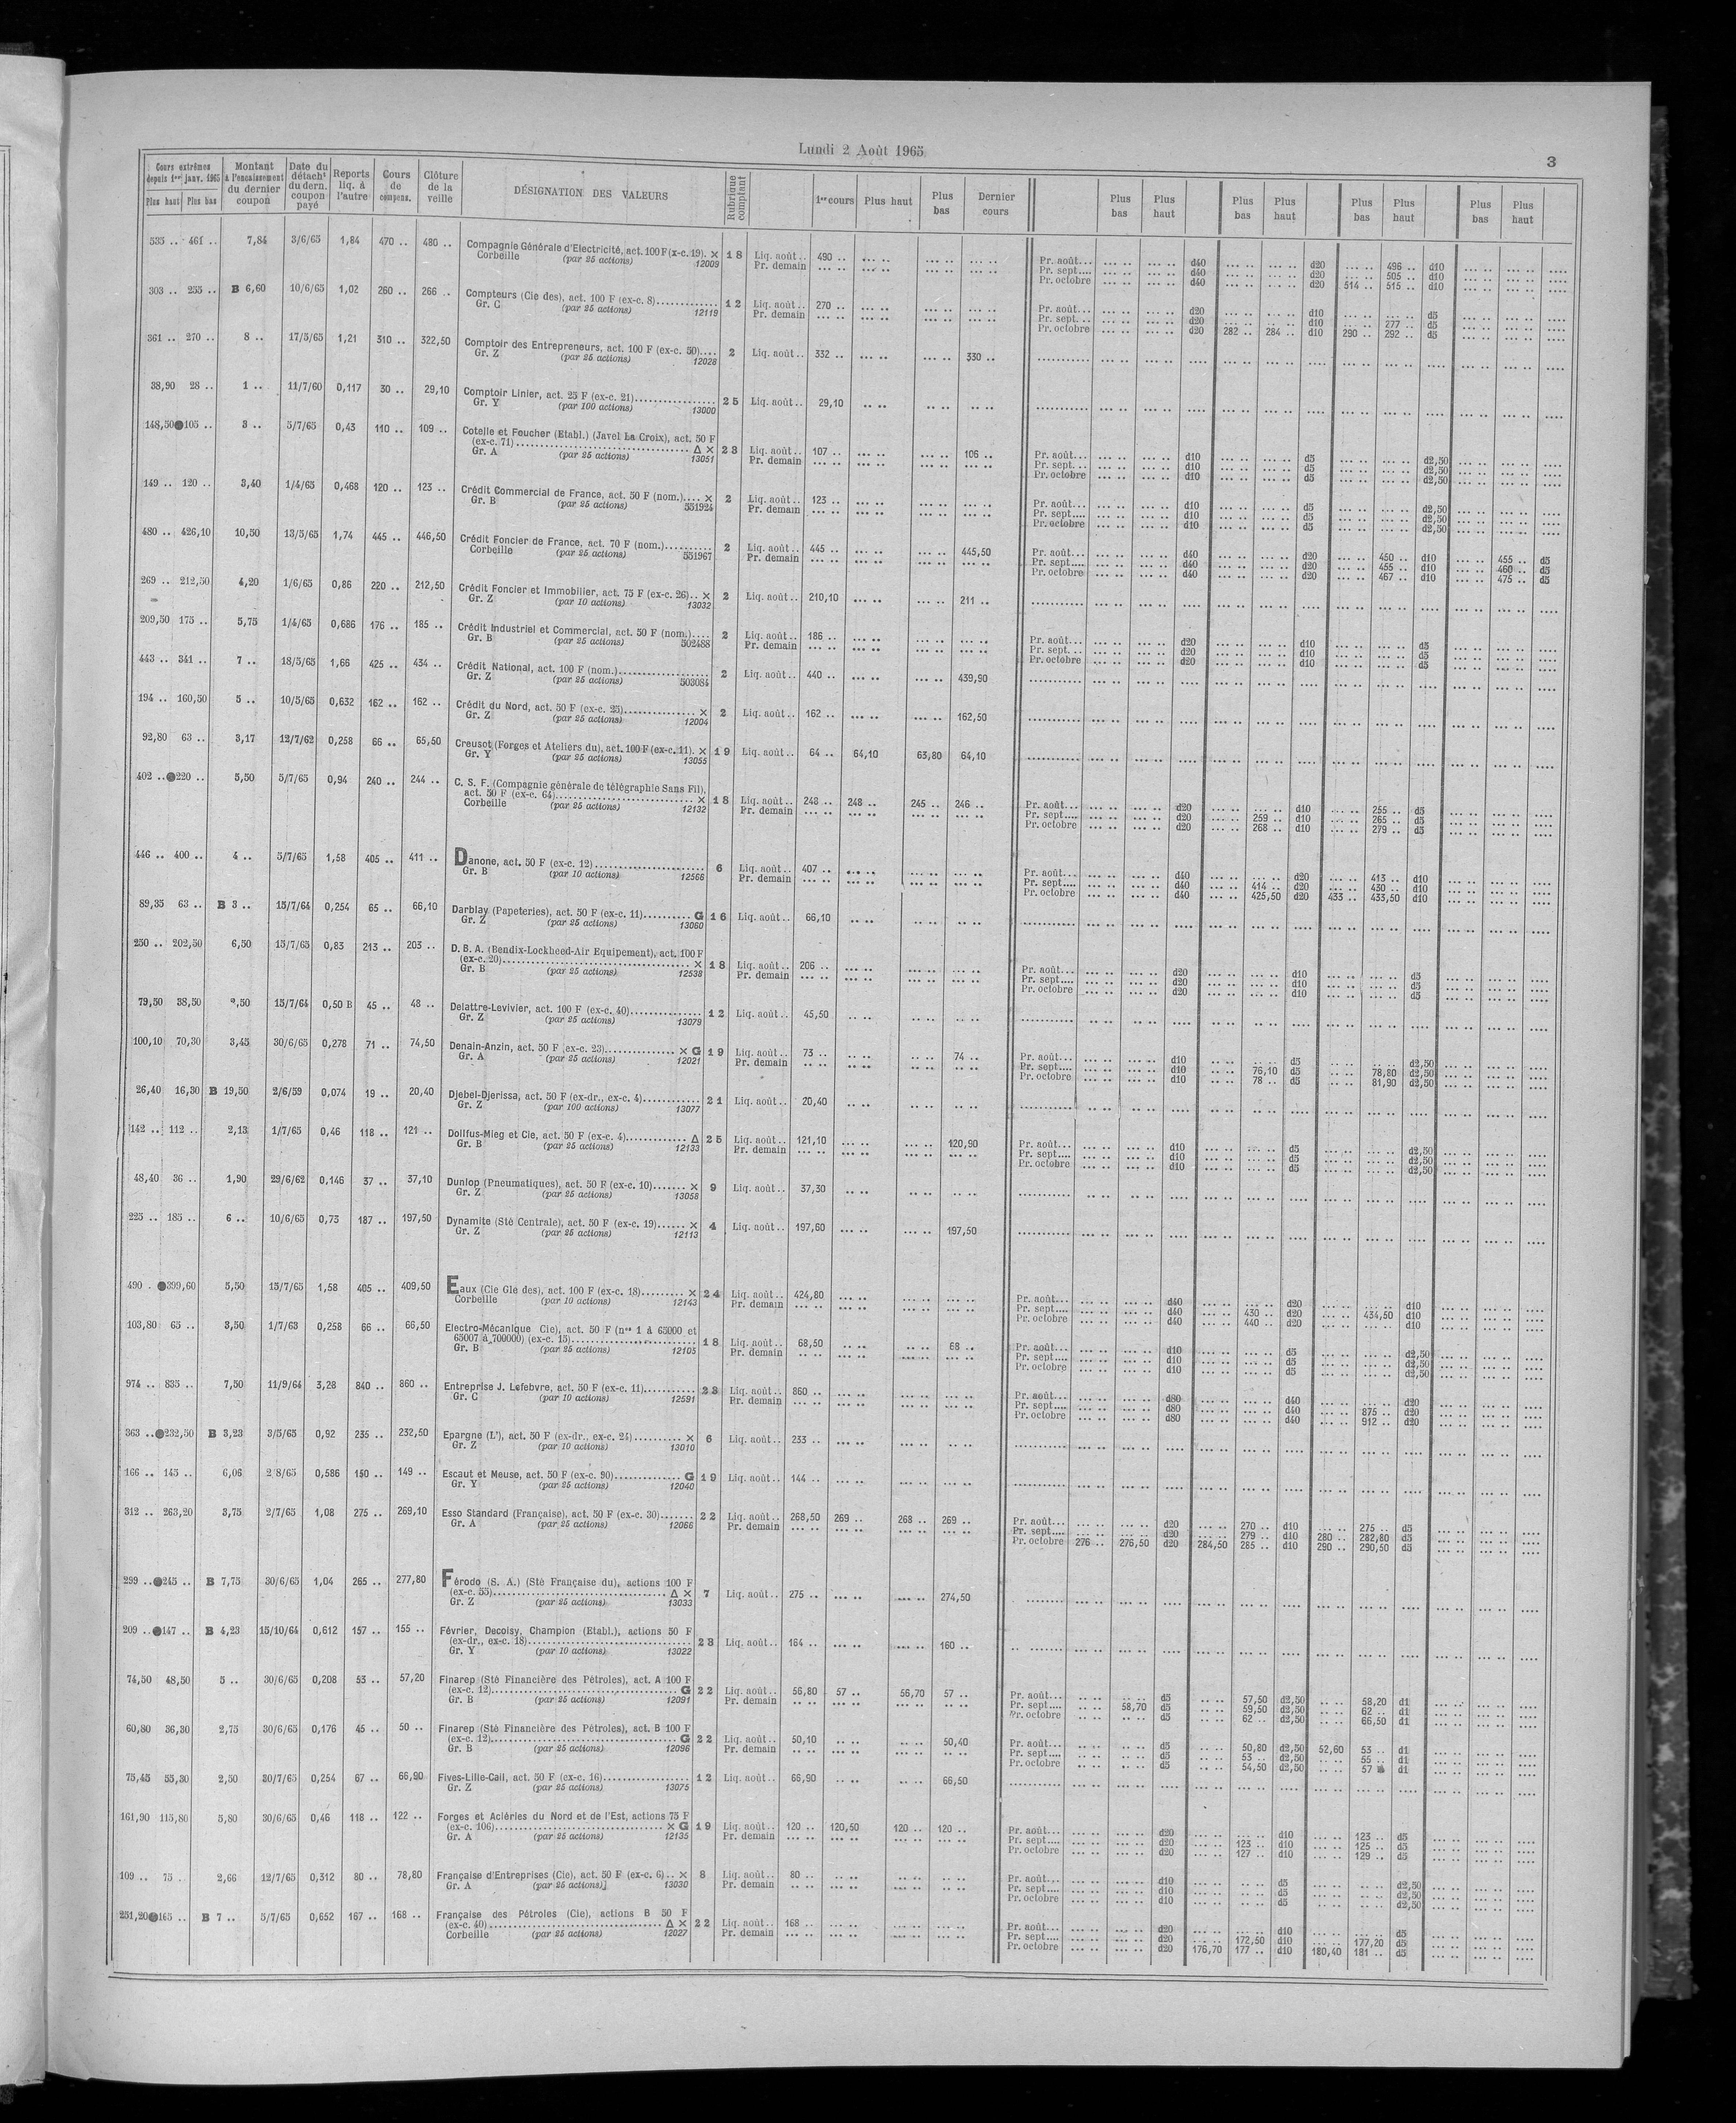 Lundi 2 Août 1965
3
Cours extrêmes depuis 1er janv. 1965 Plus haut Plus bas | Montant à l'encaissement du dernier coupon | Date du détacht du dern. coupon payé | Reports liq. à l'autre | Cours de compens. | Clôture de la veille | DÉSIGNATION DES VALEURS | Rubrique comptant | 1er cours | Plus haut | Plus bas | Dernier cours | Plus bas | Plus haut | Plus bas | Plus haut | Plus bas | Plus haut | Plus bas | Plus haut
535 .. 461 .. 7,84 3/6/65 1,84 470 .. 480 .. Compagnie Générale d'Electricité, act. 100 F (x-c. 19). × 18 Liq. août.. 490 .. Pr. août... d40 d20 496 .. d10
Corbeille (par 25 actions) 12009 Pr. demain Pr. sept.... d40 d20 505 .. d10
Pr. octobre d40 d20 514 .. 515 .. d10
303 .. 255 .. B 6,60 10/6/65 1,02 260 .. 266 .. Compteurs (Cie des), act. 100 F (ex-c. 8)............. 12 Liq. août.. 270 .. Pr. août... d20 d10 d5
Gr. C (par 25 actions) 12119 Pr. demain Pr. sept... d20 d10 277 .. d5
Pr. octobre d20 282 .. 284 .. d10 290 .. 292 .. d5
361 .. 270 .. 8 .. 17/5/65 1,21 310 .. 322,50 Comptoir des Entrepreneurs, act. 100 F (ex-c. 50).... 2 Liq. août.. 332 .. 330 ..
Gr. Z (par 25 actions) 12028
38,90 28 .. 1 .. 11/7/60 0,117 30 .. 29,10 Comptoir Linier, act. 25 F (ex-c. 21)................. 25 Liq. août.. 29,10
Gr. Y (par 100 actions) 13000
148,50 105 .. 3 .. 5/7/65 0,43 110 .. 109 .. Cotelle et Foucher (Etabl.) (Javel La Croix), act. 50 F
(ex-c. 71).................................... Δ × 23 Liq. août.. 107 .. 106 .. Pr. août... d10 d5 d2,50
Gr. A (par 25 actions) 13051 Pr. demain Pr. sept... d10 d5 d2,50
Pr. octobre d10 d5 d2,50
149 .. 120 .. 3,40 1/4/65 0,468 120 .. 123 .. Crédit Commercial de France, act. 50 F (nom.).... × 2 Liq. août.. 123 .. Pr. août... d10 d5 d2,50
Gr. B (par 25 actions) 551924 Pr. demain Pr. sept.... d10 d5 d2,50
Pr. octobre d10 d5 d2,50
480 .. 426,10 10,50 13/5/65 1,74 445 .. 446,50 Crédit Foncier de France, act. 70 F (nom.).......... 2 Liq. août.. 445 .. 445,50 Pr. août... d40 d20 450 .. d10 455 .. d5
Corbeille (par 25 actions) 551967 Pr. demain Pr. sept.... d40 d20 455 .. d10 460 .. d5
Pr. octobre d40 d20 467 .. d10 475 .. d5
269 .. 212,50 4,20 1/6/65 0,86 220 .. 212,50 Crédit Foncier et Immobilier, act. 75 F (ex-c. 26).. × 2 Liq. août.. 210,10 211 ..
Gr. Z (par 10 actions) 13032
209,50 175 .. 5,75 1/4/65 0,686 176 .. 185 .. Crédit Industriel et Commercial, act. 50 F (nom.).... 2 Liq. août.. 186 .. Pr. août... d20 d10 d5
Gr. B (par 25 actions) 502488 Pr. demain Pr. sept... d20 d10 d5
Pr. octobre d20 d10 d5
443 .. 341 .. 7 .. 18/5/65 1,66 425 .. 434 .. Crédit National, act. 100 F (nom.)................... 2 Liq. août.. 440 .. 439,90
Gr. Z (par 25 actions) 503084
194 .. 160,50 5 .. 10/5/65 0,632 162 .. 162 .. Crédit du Nord, act. 50 F (ex-c. 25)............... × 2 Liq. août.. 162 .. 162,50
Gr. Z (par 25 actions) 12004
92,80 63 .. 3,17 12/7/62 0,258 66 .. 65,50 Creusot (Forges et Ateliers du), act. 100 F (ex-c. 11). × 19 Liq. août.. 64 .. 64,10 63,80 64,10
Gr. Y (par 25 actions) 13055
402 .. 220 .. 5,50 5/7/65 0,94 240 .. 244 .. C. S. F. (Compagnie générale de télégraphie Sans Fil),
act. 50 F (ex-c. 64)............................ × 18 Liq. août.. 248 .. 248 .. 245 .. 246 .. Pr. août... d20 d10 255 .. d5
Corbeille (par 25 actions) 12132 Pr. demain Pr. sept.... d20 259 .. d10 265 .. d5
Pr. octobre d20 268 .. d10 279 .. d5
446 .. 400 .. 4 .. 5/7/65 1,58 405 .. 411 .. Danone, act. 50 F (ex-c. 12)....................... 6 Liq. août.. 407 .. Pr. août... d40 d20 413 .. d10
Gr. B (par 10 actions) 12566 Pr. demain Pr. sept.... d40 414 .. d20 430 .. d10
Pr. octobre d40 425,50 d20 433 .. 433,50 d10
89,35 63 .. B 3 .. 15/7/64 0,254 65 .. 66,10 Darblay (Papeteries), act. 50 F (ex-c. 11).......... G 16 Liq. août.. 66,10
Gr. Z (par 25 actions) 13060
250 .. 202,50 6,50 15/7/65 0,83 213 .. 203 .. D. B. A. (Bendix-Lockheed-Air Equipement), act. 100 F
(ex-c. 20)...................................... × 18 Liq. août.. 206 .. Pr. août... d20 d10 d5
Gr. B (par 25 actions) 12538 Pr. demain Pr. sept.... d20 d10 d5
Pr. octobre d20 d10 d5
79,50 38,50 ,50 15/7/64 0,50 B 45 .. 48 .. Delattre-Levivier, act. 100 F (ex-c. 40)............... 12 Liq. août.. 45,50
Gr. Z (par 25 actions) 13079
100,10 70,30 3,45 30/6/65 0,278 71 .. 74,50 Denain-Anzin, act. 50 F (ex-c. 23)............... × G 19 Liq. août.. 73 .. 74 .. Pr. août... d10 d5 d2,50
Gr. A (par 25 actions) 12021 Pr. demain Pr. sept.... d10 76,10 d5 78,80 d2,50
Pr. octobre d10 78 .. d5 81,90 d2,50
26,40 16,30 B 19,50 2/6/59 0,074 19 .. 20,40 Djebel-Djerissa, act. 50 F (ex-dr., ex-c. 4)............ 21 Liq. août.. 20,40
Gr. Z (par 100 actions) 13077
142 .. 112 .. 2,13 1/7/65 0,46 118 .. 121 .. Dollfus-Mieg et Cie, act. 50 F (ex-c. 4)............. Δ 25 Liq. août.. 121,10 120,90 Pr. août... d10 d5 d2,50
Gr. B (par 25 actions) 12133 Pr. demain Pr. sept.... d10 d5 d2,50
Pr. octobre d10 d5 d2,50
48,40 36 .. 1,90 29/6/62 0,146 37 .. 37,10 Dunlop (Pneumatiques), act. 50 F (ex-c. 10)....... × 9 Liq. août.. 37,30
Gr. Z (par 25 actions) 13058
225 .. 185 .. 6 .. 10/6/65 0,73 187 .. 197,50 Dynamite (Sté Centrale), act. 50 F (ex-c. 19)...... × 4 Liq. août.. 197,60 197,50
Gr. Z (par 25 actions) 12113
490 . 399,60 5,50 15/7/65 1,58 405 .. 409,50 Eaux (Cie Gle des), act. 100 F (ex-c. 18)......... × 24 Liq. août.. 424,80 Pr. août... d40 d20 d10
Corbeille (par 10 actions) 12143 Pr. demain Pr. sept.... d40 430 .. d20 434,50 d10
Pr. octobre d40 440 .. d20 d10
103,80 65 .. 3,50 1/7/63 0,258 66 .. 66,50 Electro-Mécanique Cie), act. 50 F (nos 1 à 65000 et
65007 à 700000) (ex-c. 15).......................... 18 Liq. août.. 68,50 68 .. Pr. août... d10 d5 d2,50
Gr. B (par 25 actions) 12105 Pr. demain Pr. sept.... d10 d5 d2,50
Pr. octobre d10 d5 d2,50
974 .. 835 .. 7,50 11/9/64 3,28 840 .. 860 .. Entreprise J. Lefebvre, act. 50 F (ex-c. 11)........... 23 Liq. août.. 860 .. Pr. août... d80 d40 d20
Gr. C (par 10 actions) 12591 Pr. demain Pr. sept.... d80 d40 875 .. d20
Pr. octobre d80 d40 912 .. d20
363 .. 232,50 B 3,23 3/5/65 0,92 235 .. 232,50 Epargne (L'), act. 50 F (ex-dr., ex-c. 24).......... × 6 Liq. août.. 233 ..
Gr. Z (par 10 actions) 13010
166 .. 145 .. 6,06 2/8/65 0,586 150 .. 149 .. Escaut et Meuse, act. 50 F (ex-c. 90).............. G 19 Liq. août.. 144 ..
Gr. Y (par 25 actions) 12040
312 .. 263,20 3,75 2/7/65 1,08 275 .. 269,10 Esso Standard (Française), act. 50 F (ex-c. 30)....... 22 Liq. août.. 268,50 269 .. 268 .. 269 .. Pr. août... d20 270 .. d10 275 .. d5
Gr. A (par 25 actions) 12066 Pr. demain Pr. sept.... d20 279 .. d10 280 .. 282,80 d5
Pr. octobre 276 .. 276,50 d20 284,50 285 .. d10 290 .. 290,50 d5
299 .. 245 .. B 7,75 30/6/65 1,04 265 .. 277,80 Férodo (S. A.) (Sté Française du), actions 100 F
(ex-c. 55).................................... Δ × 7 Liq. août.. 275 .. 274,50
Gr. Z (par 25 actions) 13033
209 .. 147 .. B 4,23 15/10/64 0,612 157 .. 155 .. Février, Decoisy, Champion (Etabl.), actions 50 F
(ex-dr., ex-c. 18).................................. 23 Liq. août.. 164 .. 160 ..
Gr. Y (par 10 actions) 13022
74,50 48,50 5 .. 30/6/65 0,208 53 .. 57,20 Finarep (Sté Financière des Pétroles), act. A 100 F
(ex-c. 12)....................................... G 22 Liq. août.. 56,80 57 .. 56,70 57 .. Pr. août... d5 57,50 d2,50 58,20 d1
Gr. B (par 25 actions) 12091 Pr. demain Pr. sept.... 58,70 d5 59,50 d2,50 62 .. d1
Pr. octobre d5 62 .. d2,50 66,50 d1
60,80 36,30 2,75 30/6/65 0,176 45 .. 50 .. Finarep (Sté Financière des Pétroles), act. B 100 F
(ex-c. 12)....................................... G 22 Liq. août.. 50,10 50,40 Pr. août... d5 50,80 d2,50 52,60 53 .. d1
Gr. B (par 25 actions) 12096 Pr. demain Pr. sept.... d5 53 .. d2,50 55 .. d1
Pr. octobre d5 54,50 d2,50 57 d1
75,45 55,30 2,50 30/7/65 0,254 67 .. 66,90 Fives-Lille-Cail, act. 50 F (ex-c. 16).................. 12 Liq. août.. 66,90 66,50
Gr. Z (par 25 actions) 13075
161,90 115,80 5,80 30/6/65 0,46 118 .. 122 .. Forges et Aciéries du Nord et de l'Est, actions 75 F
(ex-c. 106)................................... × G 19 Liq. août.. 120 .. 120,50 120 .. 120 .. Pr. août... d20 d10 123 .. d5
Gr. A (par 25 actions) 12135 Pr. demain Pr. sept.... d20 123 .. d10 125 .. d5
Pr. octobre d20 127 .. d10 129 .. d5
109 .. 75 . 2,66 12/7/65 0,312 80 .. 78,80 Française d'Entreprises (Cie), act. 50 F (ex-c. 6).. × 8 Liq. août.. 80 .. Pr. août... d10 d5 d2,50
Gr. A (par 25 actions) 13030 Pr. demain Pr. sept.... d10 d5 d2,50
Pr. octobre d10 d5 d2,50
251,20 165 .. B 7 .. 5/7/65 0,652 167 .. 168 .. Française des Pétroles (Cie), actions B 50 F
(ex-c. 40).................................... Δ × 22 Liq. août.. 168 .. Pr. août... d20 d10 d5
Corbeille (par 25 actions) 12027 Pr. demain Pr. sept.... d20 172,50 d10 177,20 d5
Pr. octobre d20 176,70 177 .. d10 180,40 181 .. d5